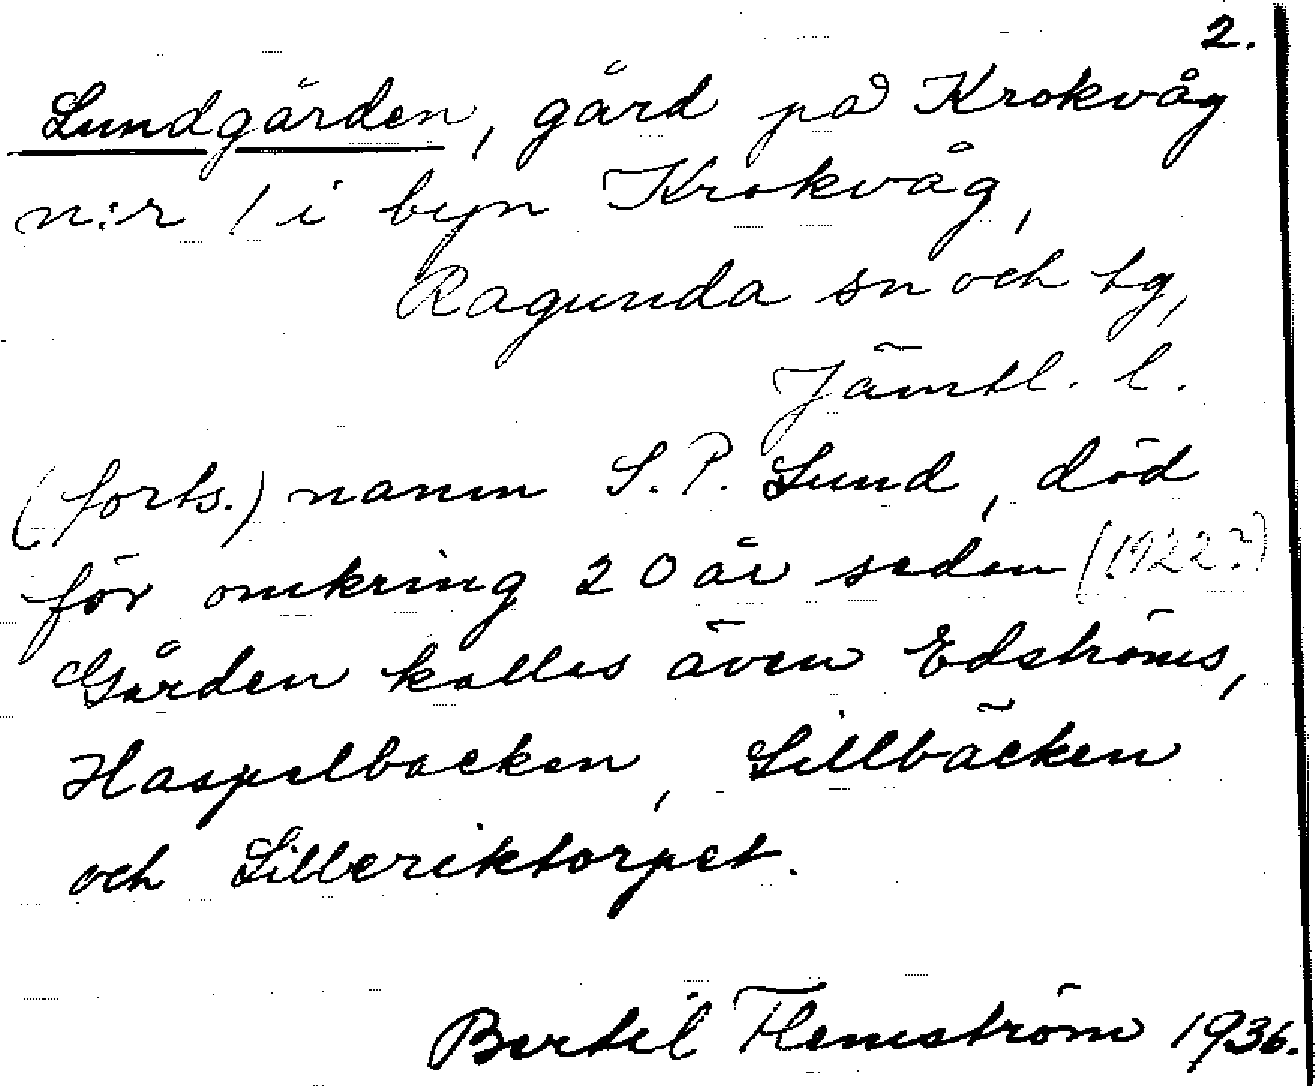 2.
Lundgården, gård på Krokvåg
n:r 1 i byn Krokvåg,
Ragunda sn och tg,
Jämtl. l.
(forts.) namn S. P. Lund, död
för omkring 20 år sedan (1922?)
Gården kallas även Edströms,
Haspelbacken, Lillbäcken
och Lilleriktorpet.
Bertil Flemström 1936.